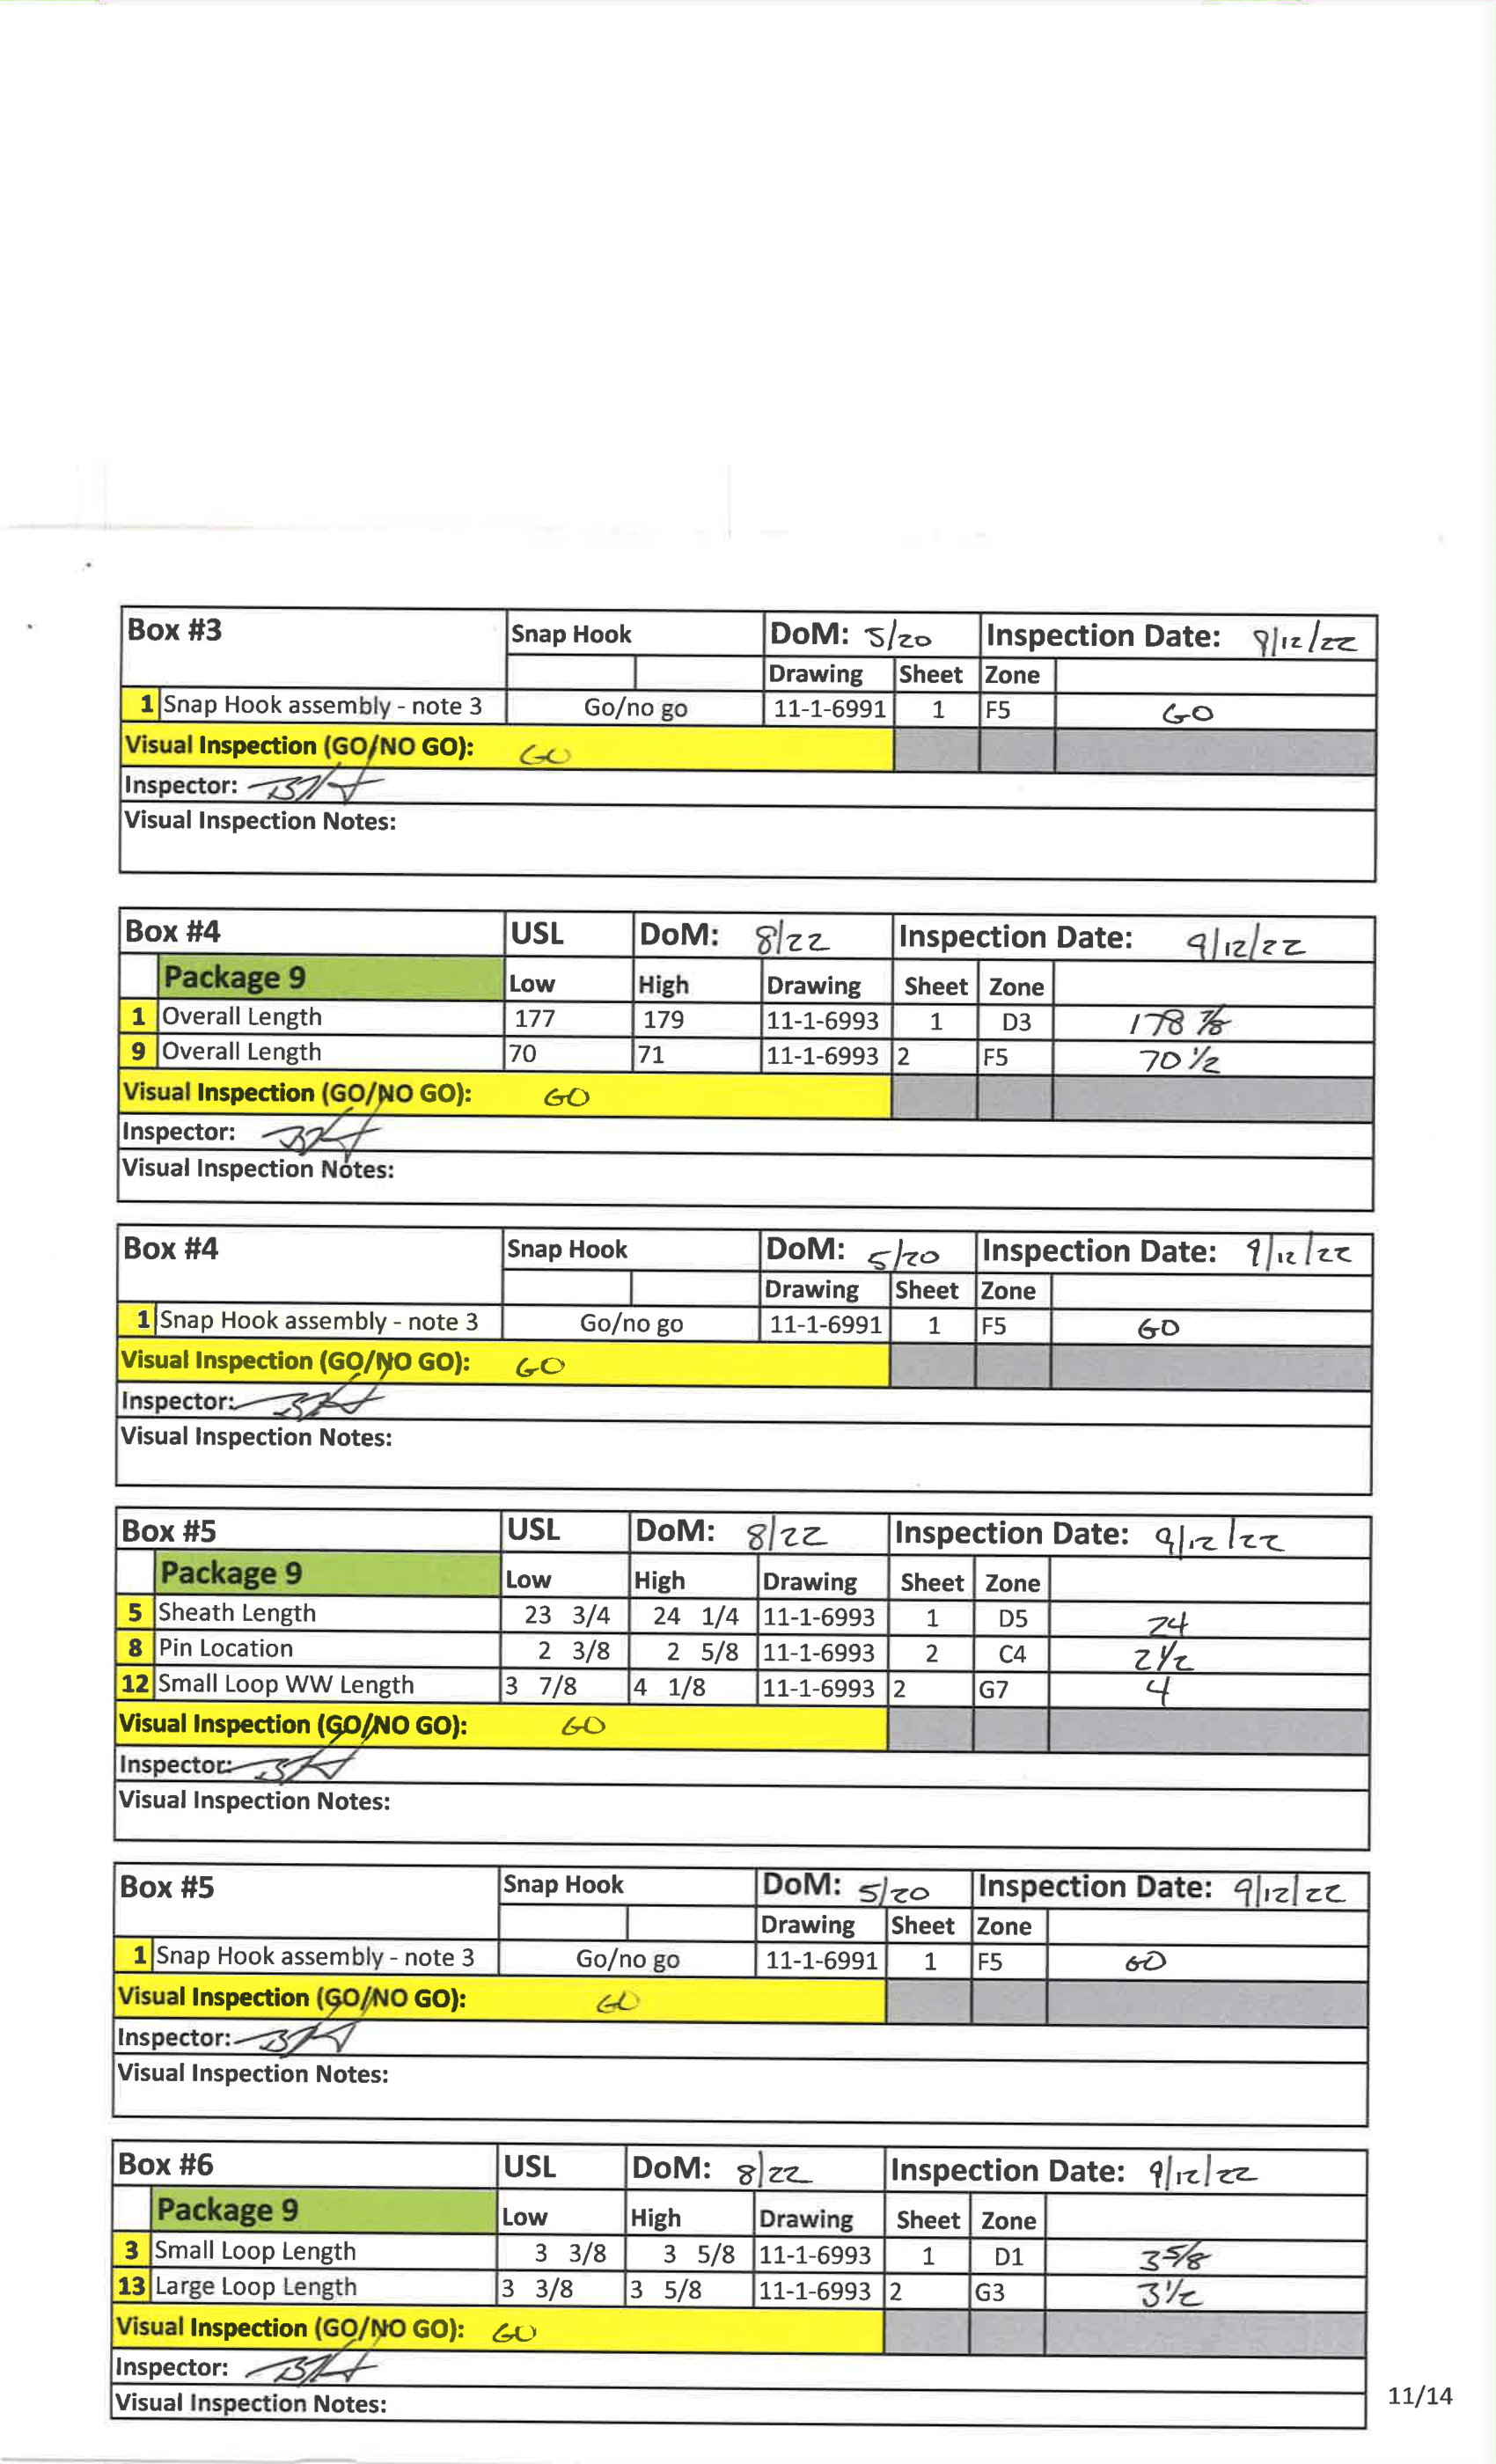 Box #3 Snap Hook DoM: 5/20 Inspection Date: 9/12/22
Drawing Sheet Zone
1 Snap Hook assembly - note 3 Go/no go 11-1-6991 1 F5 GO
Visual Inspection (GO/NO GO): GO
Inspector:
Visual Inspection Notes:
Box #4 USL DoM: 8/22 Inspection Date: 9/12/22
Package 9 Low High Drawing Sheet Zone
1 Overall Length 177 179 11-1-6993 1 D3 178 7/8
9 Overall Length 70 71 11-1-6993 2 F5 70 1/2
Visual Inspection (GO/NO GO): GO
Inspector:
Visual Inspection Notes:
Box #4 Snap Hook DoM: 5/20 Inspection Date: 9/12/22
Drawing Sheet Zone
1 Snap Hook assembly - note 3 Go/no go 11-1-6991 1 F5 GO
Visual Inspection (GO/NO GO): GO
Inspector:
Visual Inspection Notes:
Box #5 USL DoM: 8/22 Inspection Date: 9/12/22
Package 9 Low High Drawing Sheet Zone
5 Sheath Length 23 3/4 24 1/4 11-1-6993 1 D5 24
8 Pin Location 2 3/8 2 5/8 11-1-6993 2 C4 2 1/2
12 Small Loop WW Length 3 7/8 4 1/8 11-1-6993 2 G7 4
Visual Inspection (GO/NO GO): GO
Inspector:
Visual Inspection Notes:
Box #5 Snap Hook DoM: 5/20 Inspection Date: 9/12/22
Drawing Sheet Zone
1 Snap Hook assembly - note 3 Go/no go 11-1-6991 1 F5 GO
Visual Inspection (GO/NO GO): GO
Inspector:
Visual Inspection Notes:
Box #6 USL DoM: 8/22 Inspection Date: 9/12/22
Package 9 Low High Drawing Sheet Zone
3 Small Loop Length 3 3/8 3 5/8 11-1-6993 1 D1 3 5/8
13 Large Loop Length 3 3/8 3 5/8 11-1-6993 2 G3 3 1/2
Visual Inspection (GO/NO GO): GO
Inspector:
Visual Inspection Notes:
11/14